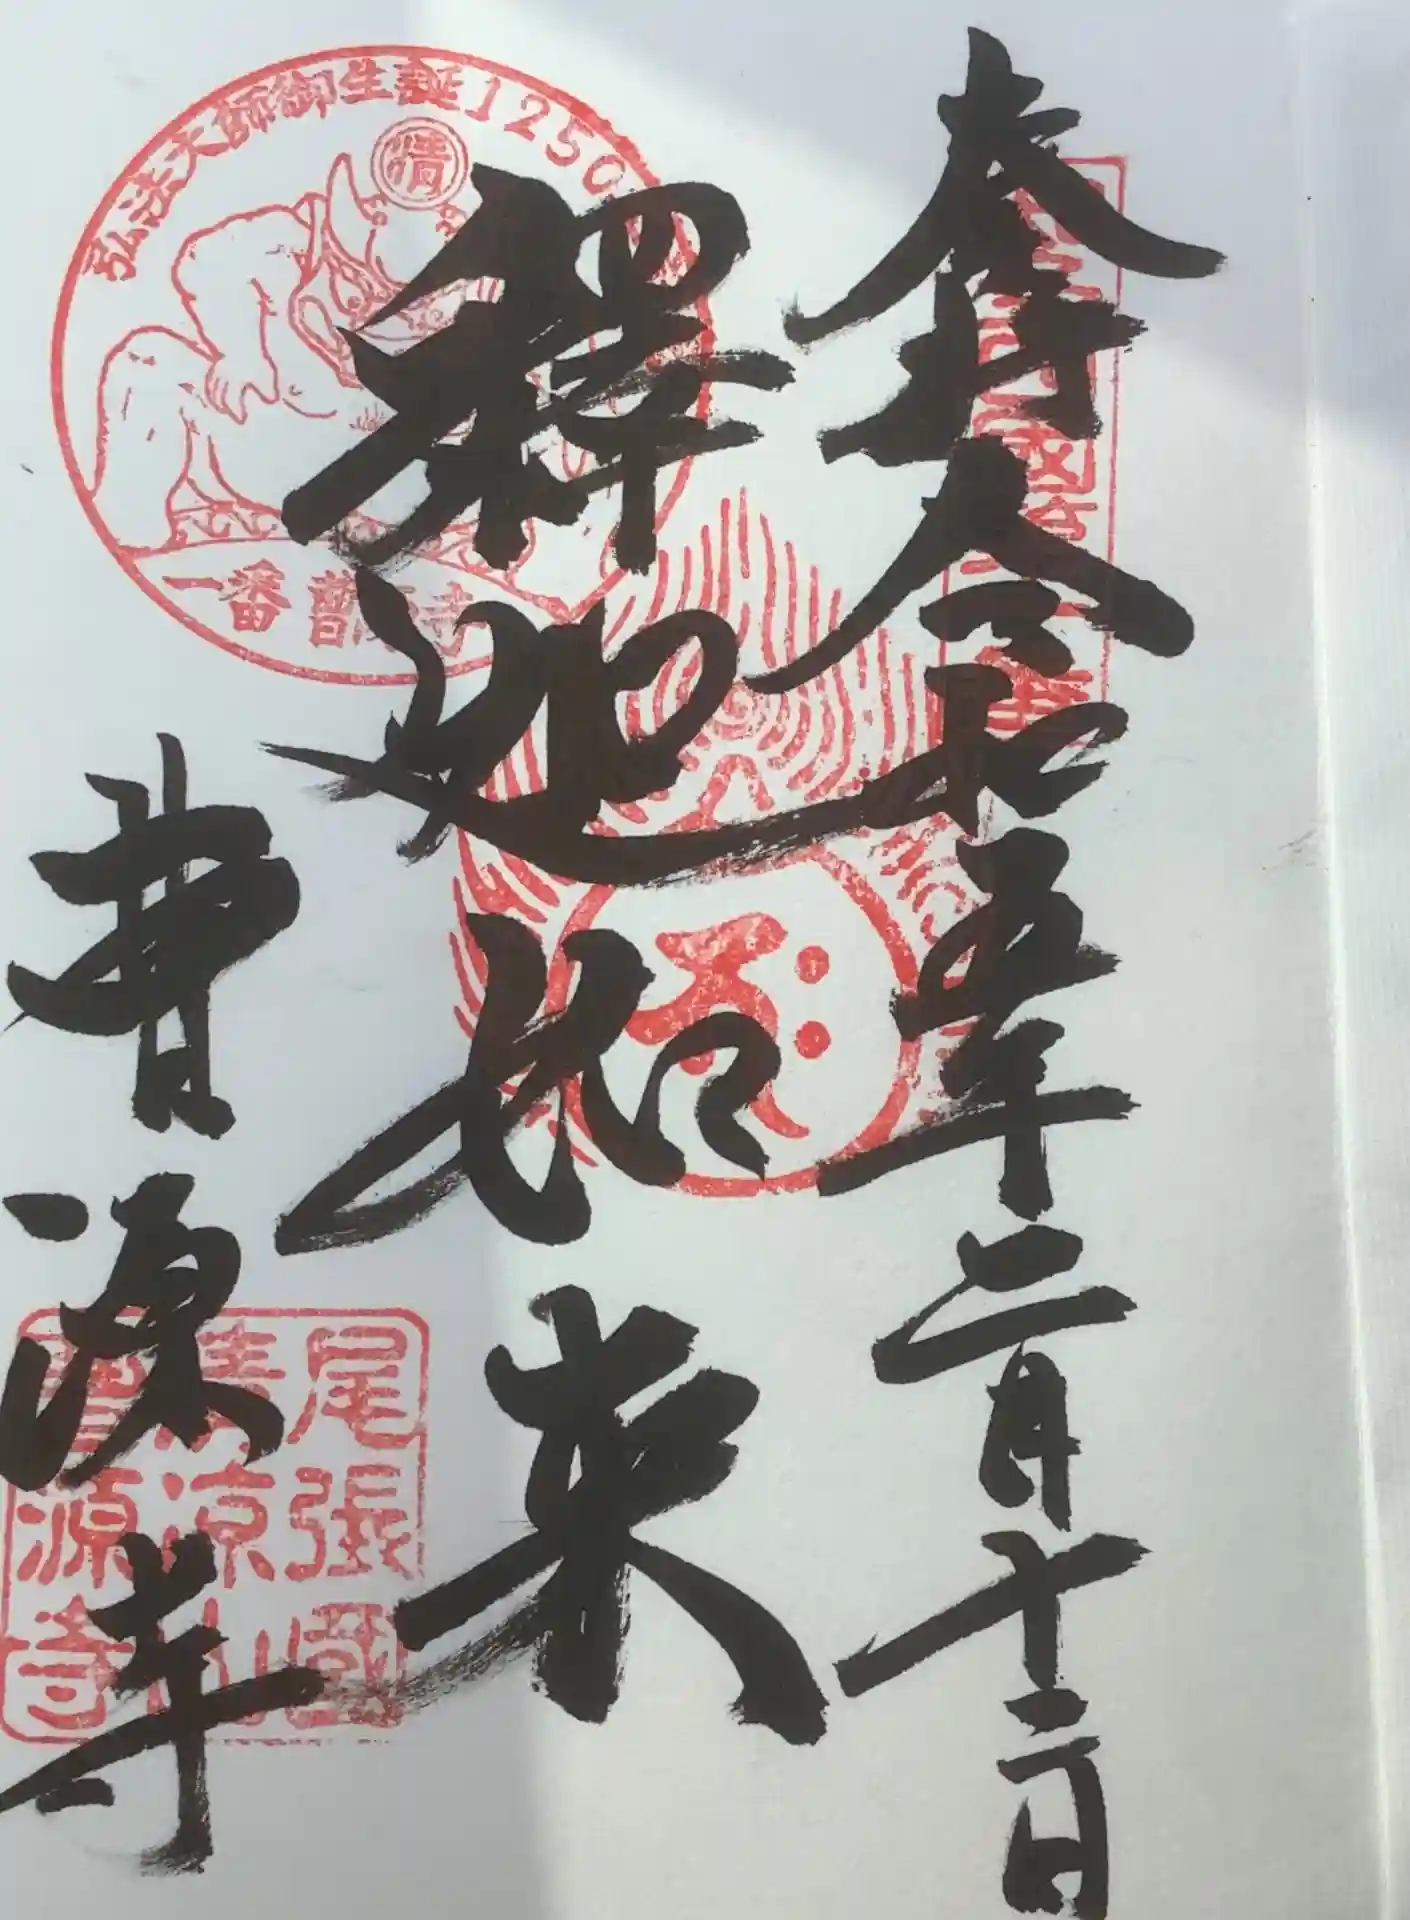 奉拝 令和五年二月十二日
釋迦如来
曹源寺
弘法大師御生誕1250
清
一番 曹源寺
尾張國
清涼山
曹源寺